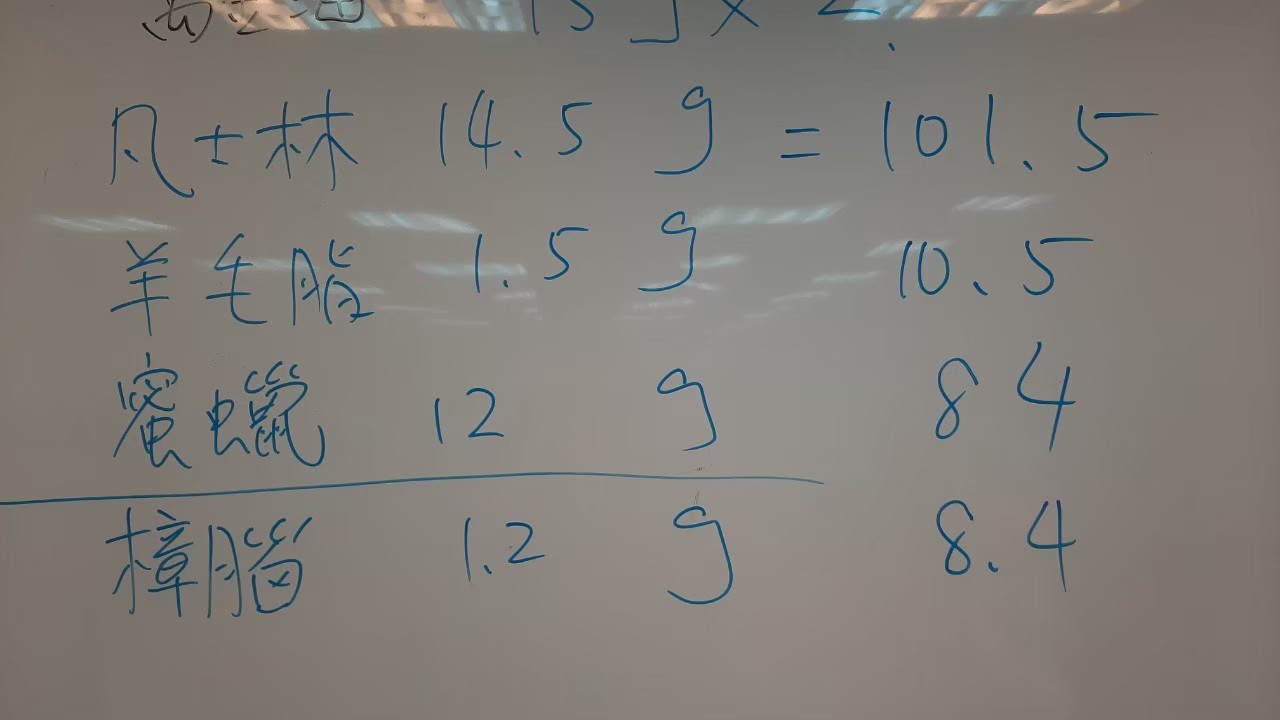 15 g ×
凡士林 14.5 g = 101.5
羊毛脂 1.5 g 10.5
蜜蠟 12 g 84
樟腦 1.2 g 8.4